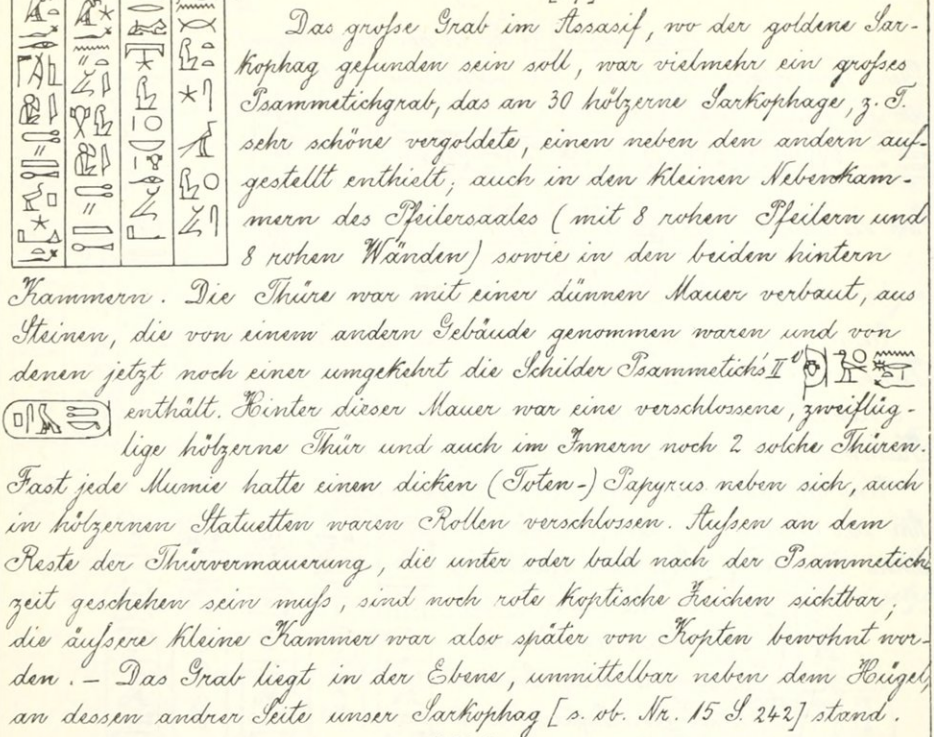 Das große Grab im Assasif, wo der goldene Sar-
kophag gefunden sein soll, war vielmehr ein großes
Psammetichgrab, das an 30 hölzerne Sarkophage, z. T.
sehr schöne vergoldete, einen neben den andern auf-
gestellt enthielt; auch in den kleinen Nebenkam-
mern des Pfeilersaales (mit 8 rohen Pfeilern und
8 rohen Wänden) sowie in den beiden hintern
Kammern. Die Thüre war mit einer dünnen Mauer verbaut, aus
Steinen, die von einem andern Gebäude genommen waren und von
denen jetzt noch einer umgekehrt die Schilder Psammetich's II
enthält. Hinter dieser Mauer war eine verschlossene, zweiflüg-
lige hölzerne Thür und auch im Innern noch 2 solche Thüren.
Fast jede Mumie hatte einen dicken (Toten-) Papyrus neben sich, auch
in hölzernen Statuetten waren Rollen verschlossen. Außen an dem
Reste der Thürvermauerung, die unter oder bald nach der Psammetich
zeit geschehen sein muß, sind noch rote koptische Zeichen sichtbar;
die äußere kleine Kammer war also später von Kopten bewohnt wor-
den. – Das Grab liegt in der Ebene, unmittelbar neben dem Hügel,
an dessen andrer Seite unser Sarkophag [s. ob. Nr. 15 S. 242] stand.